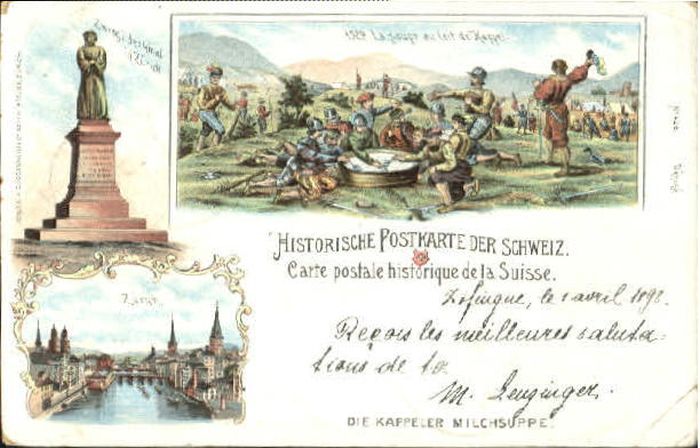 Zwinglidenkmal
Zürich
1529 La soupe au lait de Kappel.
HISTORISCHE POSTKARTE DER SCHWEIZ.
Carte postale historique de la Suisse.
Zürich
Zofingue, le 1 avril 1898.
Reçois les meilleures saluta-
tions de ta
M. Lenzinger.
DIE KAPPELER MILCHSUPPE.